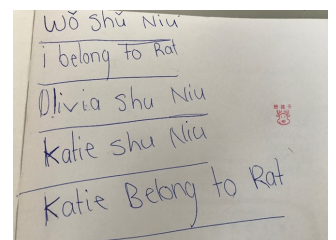 Wǒ Shǔ Niu
i belong to Rat
Olivia Shu Niu
Katie Shu Niu
Katie Belong to Rat